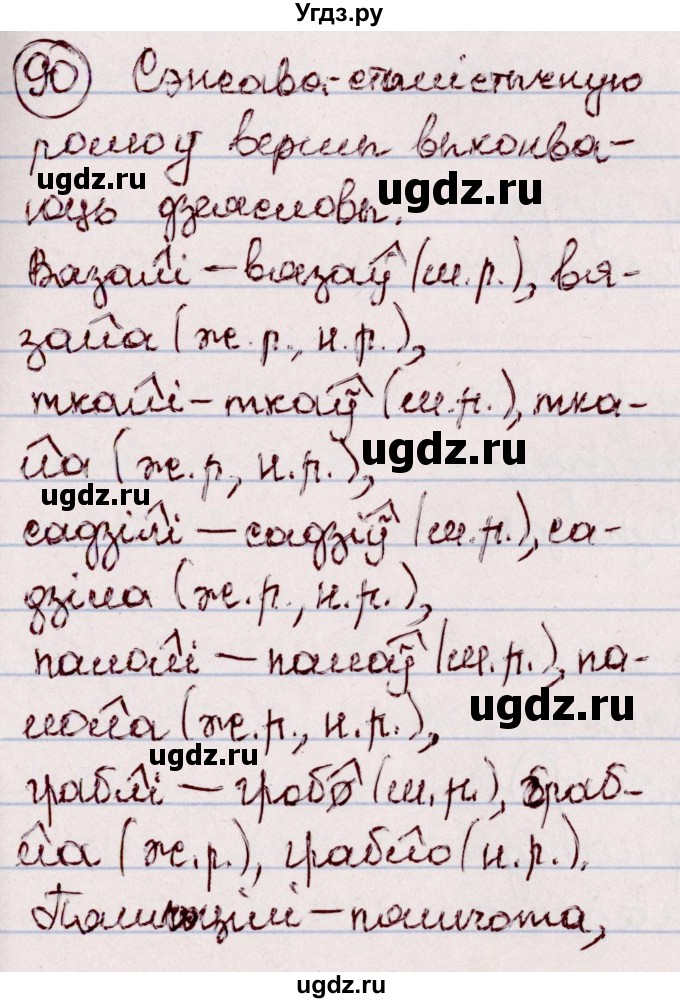 Угдз.ру
90 Сэнсава-стылістычную
ролю ў вершы выконва-
юць дзеясловы.
Вязалі – вязаў (м.р.), вя-
зала (ж.р., н.р.),
ткалі – ткаў (м.р.), тка-
ла (ж.р., н.р.),
садзілі – садзіў (м.р.), са-
дзіла (ж.р., н.р.),
палолі – палоў (м.р.), па-
лола (ж.р., н.р.),
граблі – гроб (м.р.), граб-
ла (ж.р.), грабло (н.р.).
– пяшчота,
ugdz.ru
ugdz.ru
ugdz.ru
ugdz.ru
ugdz.ru
ugdz.ru
ugdz.ru
ugdz.ru
ugdz.ru